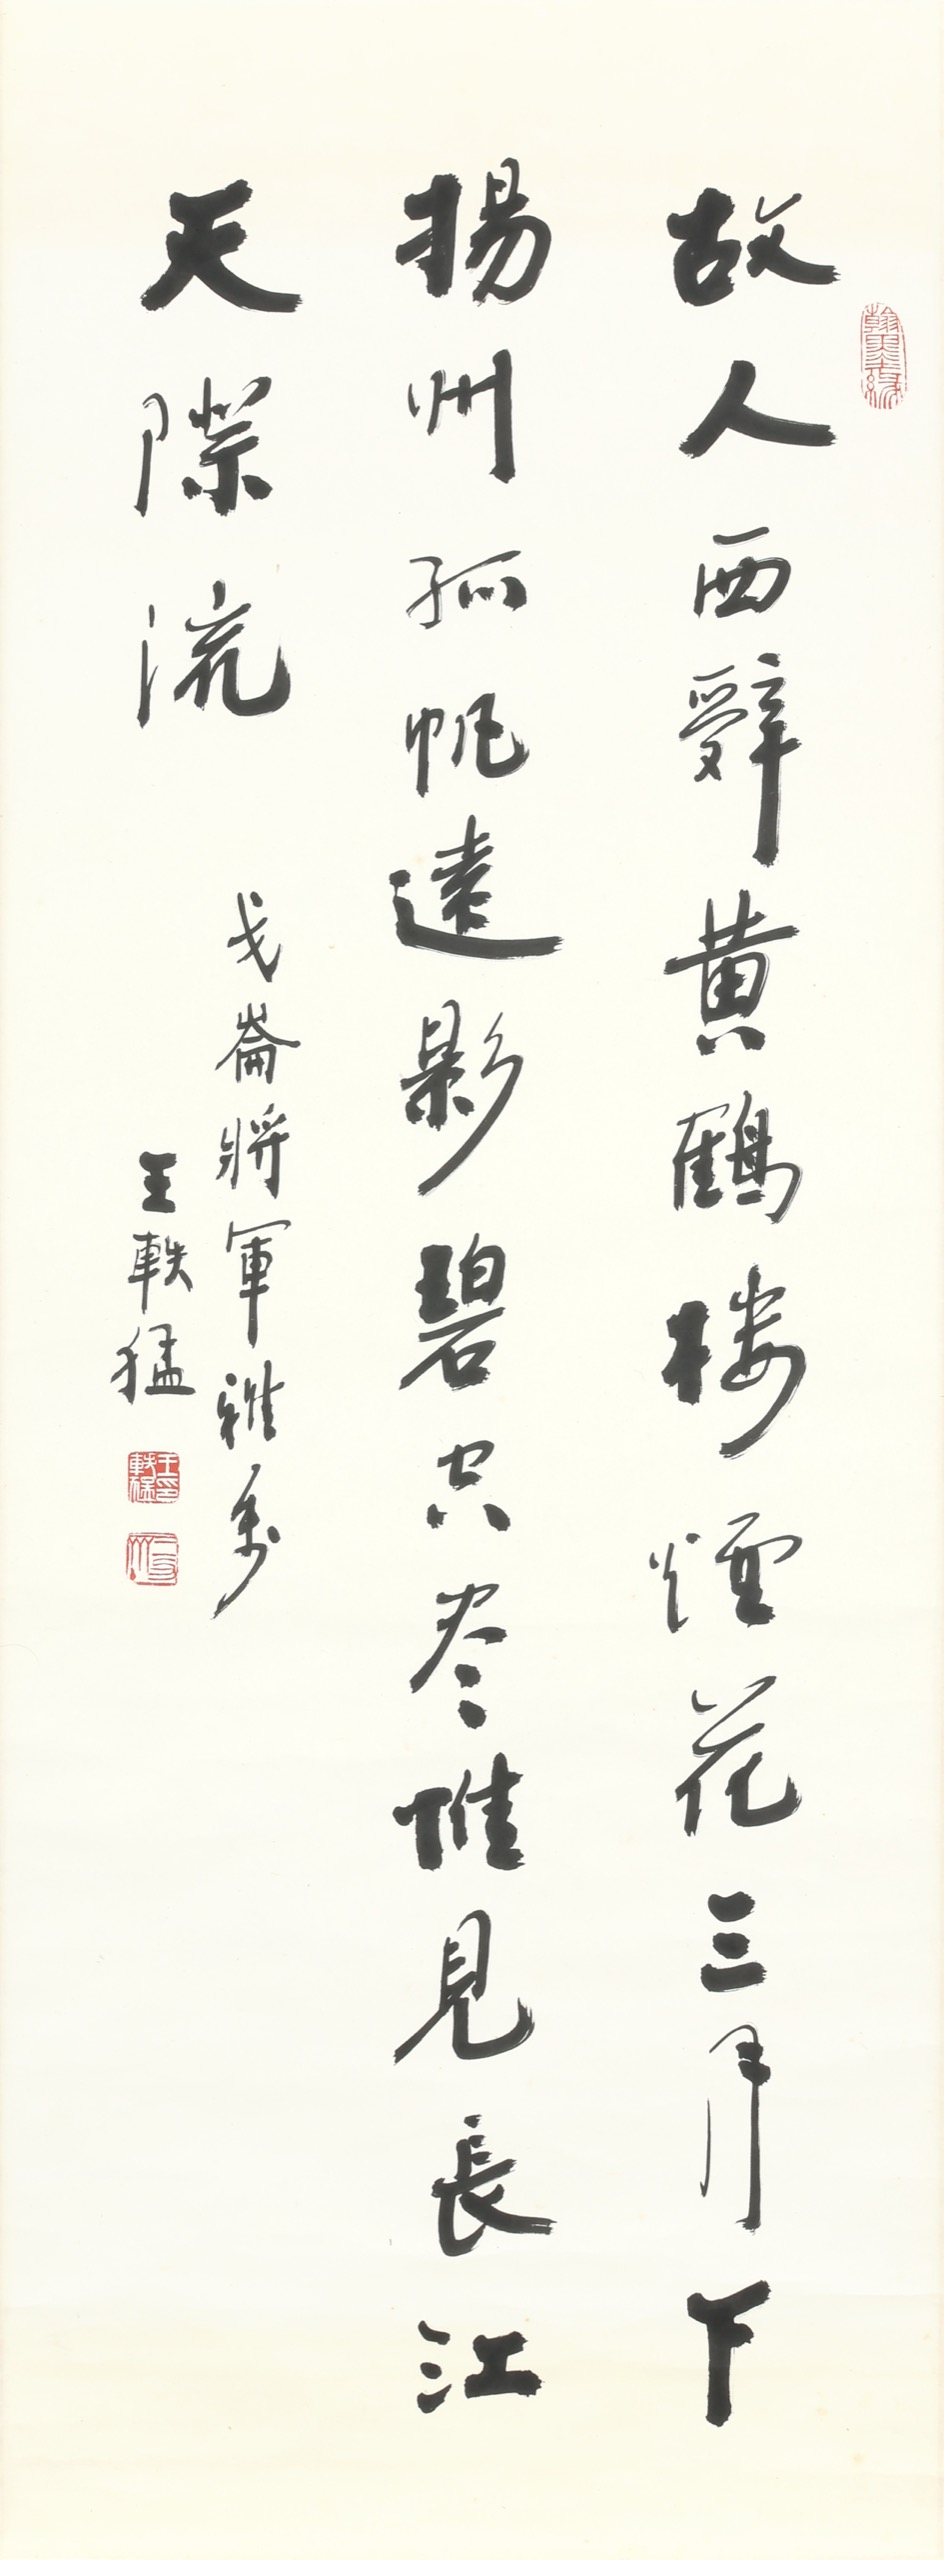 故人西辭黄鶴楼煙花三月下
揚州孤帆遠影碧空尽惟見長江
天際流
戈崙將軍雅
王軼猛
翰墨緣